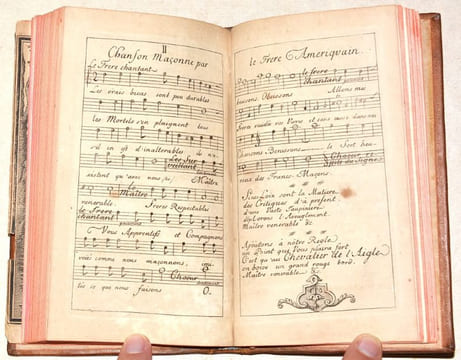 II
Chanson Maçonne par
Le Frere chantant
Les vrais biens sont peu durables
les Mortels s'en plaignent tous
s'il en est d'inalterables ils n'e
Les Sur
veillant
xistent qu'avec nous,
Maître
Le Maître
venerable
Freres Respectables
le Frere
chantant
Vous Apprentifs et Compagnons
comme nous maçonnons,
Choeur
tès ce que nous faisons
le Frere Ameriquain
le frere
chantant
buvons Obeissons
Allons mes
freres vuider vos Verres et
chansons Benissons
le Sort heu
reux des Francs-Maçons.
Choeur et
Si ses Loix sont la Matiere
des Critiques d'à present,
d'une Vaste Taupiniere
deplorons l'Aveuglement.
Maître venerable &c
Ajoutons à nôtre Regle
un Point que Vous plaira fort
C'est qu'au Chevalier de l'Aigle
on boive un grand rouge bord.
Maître venerable &c